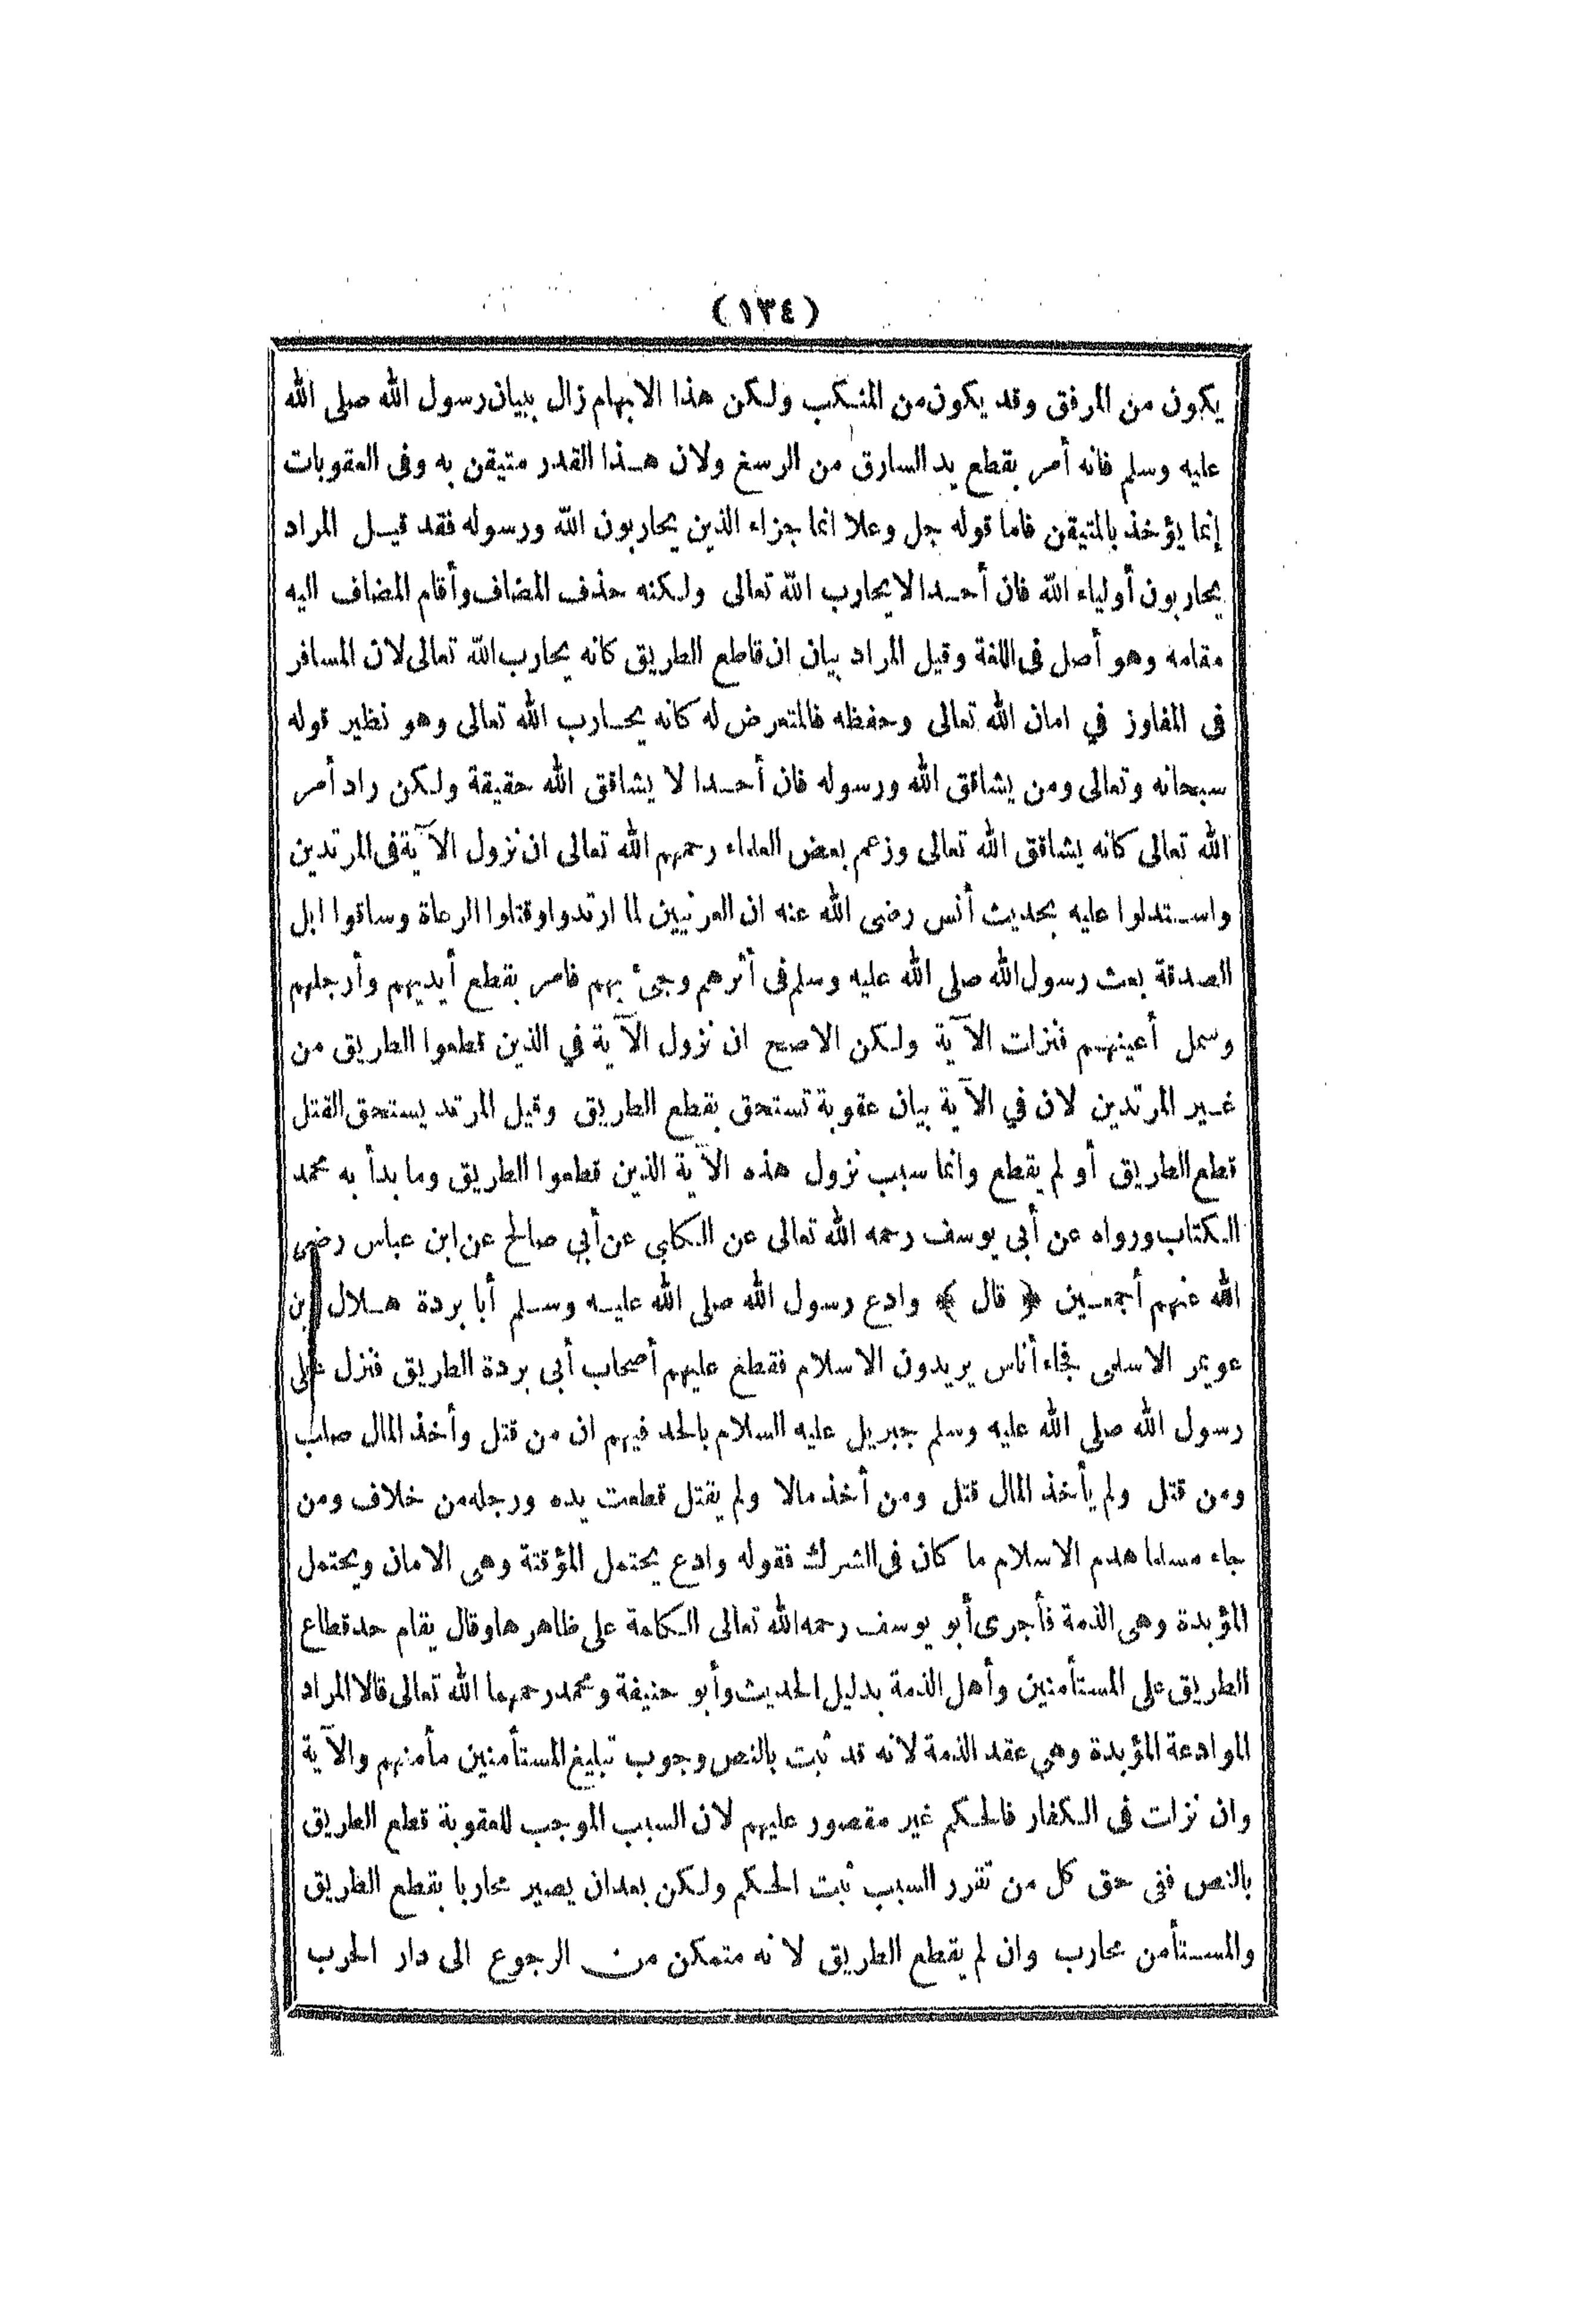 (١٣٤)
يكون من المرفق وقد يكون من المنكب ولكن هذا الابهام زال ببيان رسول الله صلى الله
عليه وسلم فانه أمر بقطع يد السارق من الرسغ ولان هذا القدر متيقن به وفى العقوبات
إنما يؤخذ بالمتيقن فاما قوله جل وعلا انما جزاء الذين يحاربون الله ورسوله فقد قيل المراد
يحاربون أولياء الله فان أحدا لا يحارب الله تعالى ولكنه حذف المضاف وأقام المضاف اليه
مقامه وهو أصل فى اللغة وقيل المراد بيان ان قاطع الطريق كانه يحارب الله تعالى لان المسافر
فى المفاوز في امان الله تعالى وحفظه فالمتعرض له كانه يحارب الله تعالى وهو نظير قوله
سبحانه وتعالى ومن يشاقق الله ورسوله فان أحدا لا يشاقق الله حقيقة ولكن راد أمر
الله تعالى كانه يشاقق الله تعالى وزعم بعض العلماء رحمهم الله تعالى ان نزول الآية فى المرتدين
واستدلوا عليه بحديث أنس رضى الله عنه ان العرنيين لما ارتدوا وقتلوا الرعاة وساقوا ابل
الصدقة بعث رسول الله صلى الله عليه وسلم فى أثرهم وجئ بهم فامر بقطع أيديهم وأرجلهم
وسمل أعينهم فنزلت الآية ولكن الاصح ان نزول الآية في الذين قطعوا الطريق من
غير المرتدين لان في الآية بيان عقوبة تستحق بقطع الطريق وقيل المرتد يستحق القتل
قطع الطريق أو لم يقطع وانما سبب نزول هذه الآية الذين قطعوا الطريق وما بدأ به محمد
الكتاب ورواه عن أبى يوسف رحمه الله تعالى عن الكلبي عن أبي صالح عن ابن عباس رضى
الله عنهم أجمعين ﴿ قال ﴾ وادع رسول الله صلى الله عليه وسلم أبا بردة هلال بن
عويمر الاسلمى فجاء أناس يريدون الاسلام فقطع عليهم أصحاب أبى بردة الطريق فنزل على
رسول الله صلى الله عليه وسلم جبريل عليه السلام بالحد فيهم ان من قتل وأخذ المال صلب
ومن قتل ولم يأخذ المال قتل ومن أخذ مالا ولم يقتل قطعت يده ورجله من خلاف ومن
جاء مسلما هدم الاسلام ما كان فى الشرك فقوله وادع يحتمل المؤقتة وهى الامان ويحتمل
المؤبدة وهى الذمة فأجرى أبو يوسف رحمه الله تعالى الكلمة على ظاهرها وقال يقام حد قطاع
الطريق على المستأمنين وأهل الذمة بدليل الحديث وأبو حنيفة ومحمد رحمهما الله تعالى قالا المراد
الموادعة المؤبدة وهي عقد الذمة لانه قد ثبت بالنص وجوب تبليغ المستأمنين مأمنهم والآية
وان نزلت فى الكفار فالحكم غير مقصور عليهم لان السبب الموجب للعقوبة قطع الطريق
بالنص ففى حق كل من تقرر السبب ثبت الحكم ولكن بعد ان يصير محاربا بقطع الطريق
والمستأمن محارب وان لم يقطع الطريق لانه متمكن من الرجوع الى دار الحرب